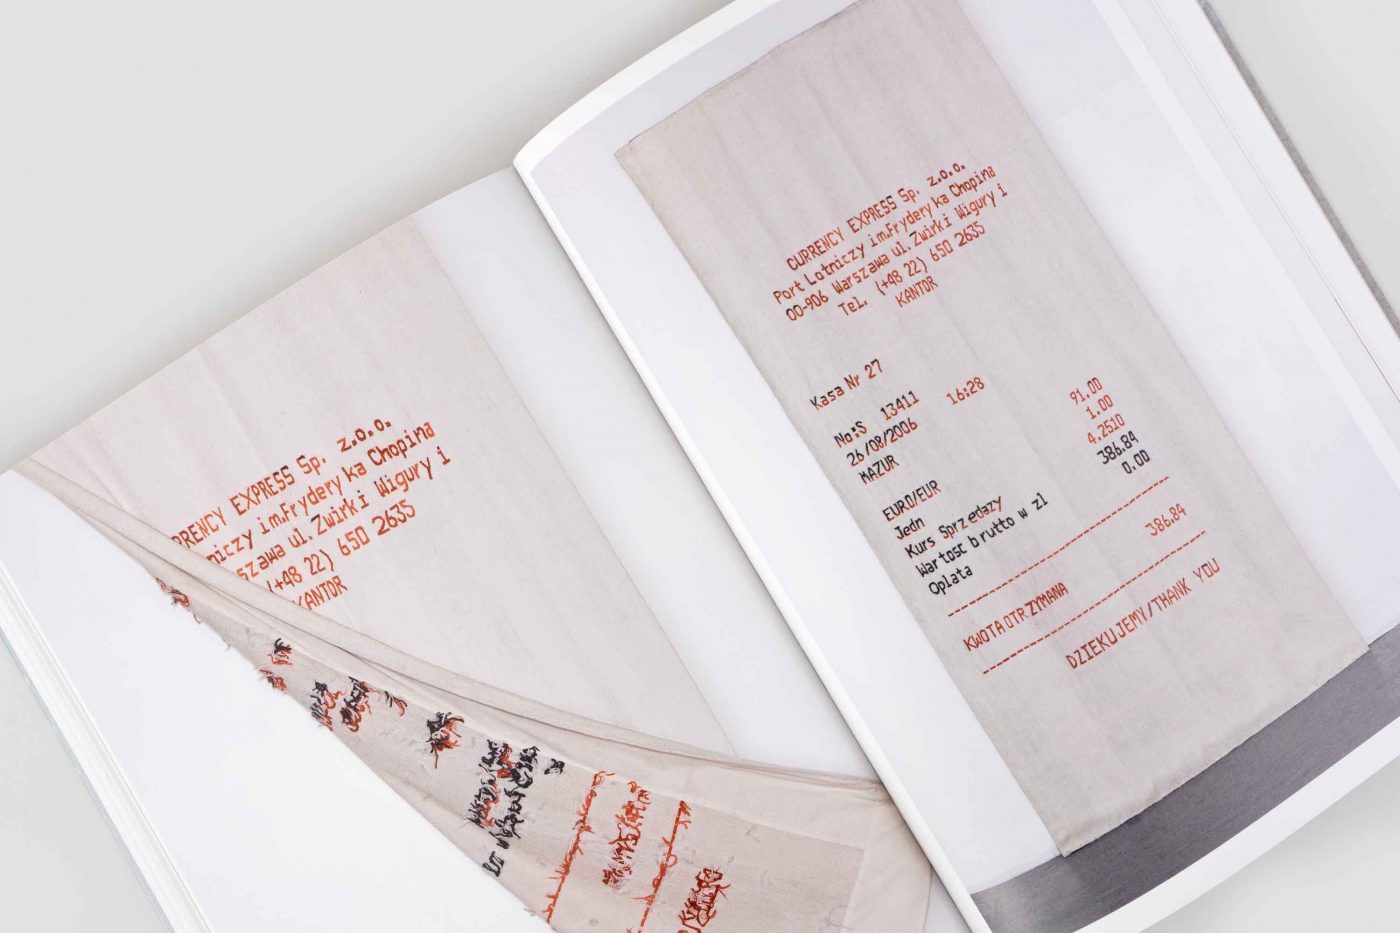 RRENCY EXPRESS Sp. z.o.o.
niczy im.Frydery ka Chopina
szawa ul. Zwirki Wigury i
(+48 22) 650 2635
KANTOR
CURRENCY EXPRESS Sp. z.o.o.
Port Lotniczy im.Frydery ka Chopina
00-906 Warszawa ul. Zwirki Wigury i
Tel. (+48 22) 650 2635
KANTOR
Kasa Nr 27
No:S 13411 16:28
26/08/2006
MAZUR
EURO/EUR 91.00
Jedn 1.00
Kurs Sprzedazy 4.2510
Wartosc brutto w zl 386.84
Oplata 0.00
KWOTA OTRZYMANA 386.84
DZIEKUJEMY/THANK YOU